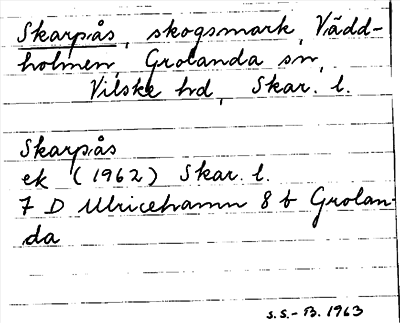 Skarpås, skogsmark, Vädd-
holmen, Grolanda sn,
Vilske hd, Skar. l.
Skarpås
ek (1962) Skar. l.
7 D Ulricehamn 8 b Grolan-
da
S.S.-B. 1963